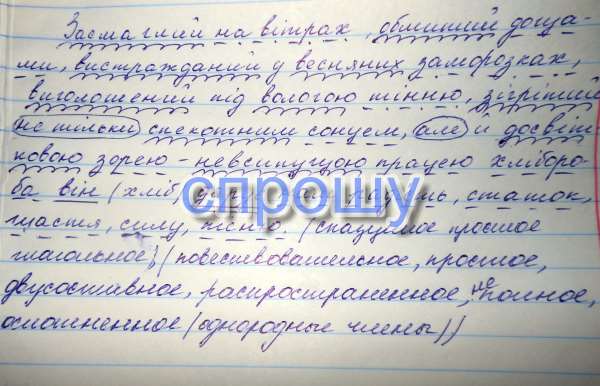 Засмаглий на вітрах, обмитий доща-
ми, вистражданий у весняних заморозках,
виголошений під вологою тінню, зігрітий
не тільки спекотним сонцем, але й досвіт-
ковою зорею - невсипущою працею хлібороба
ба він (хліб) статок,
щастя, силу, пісню. (сказуемое простое
глагольное) (повествовательное, простое,
двусоставное, распространенное, не полное,
осложненное (однородные члены))
спрошу